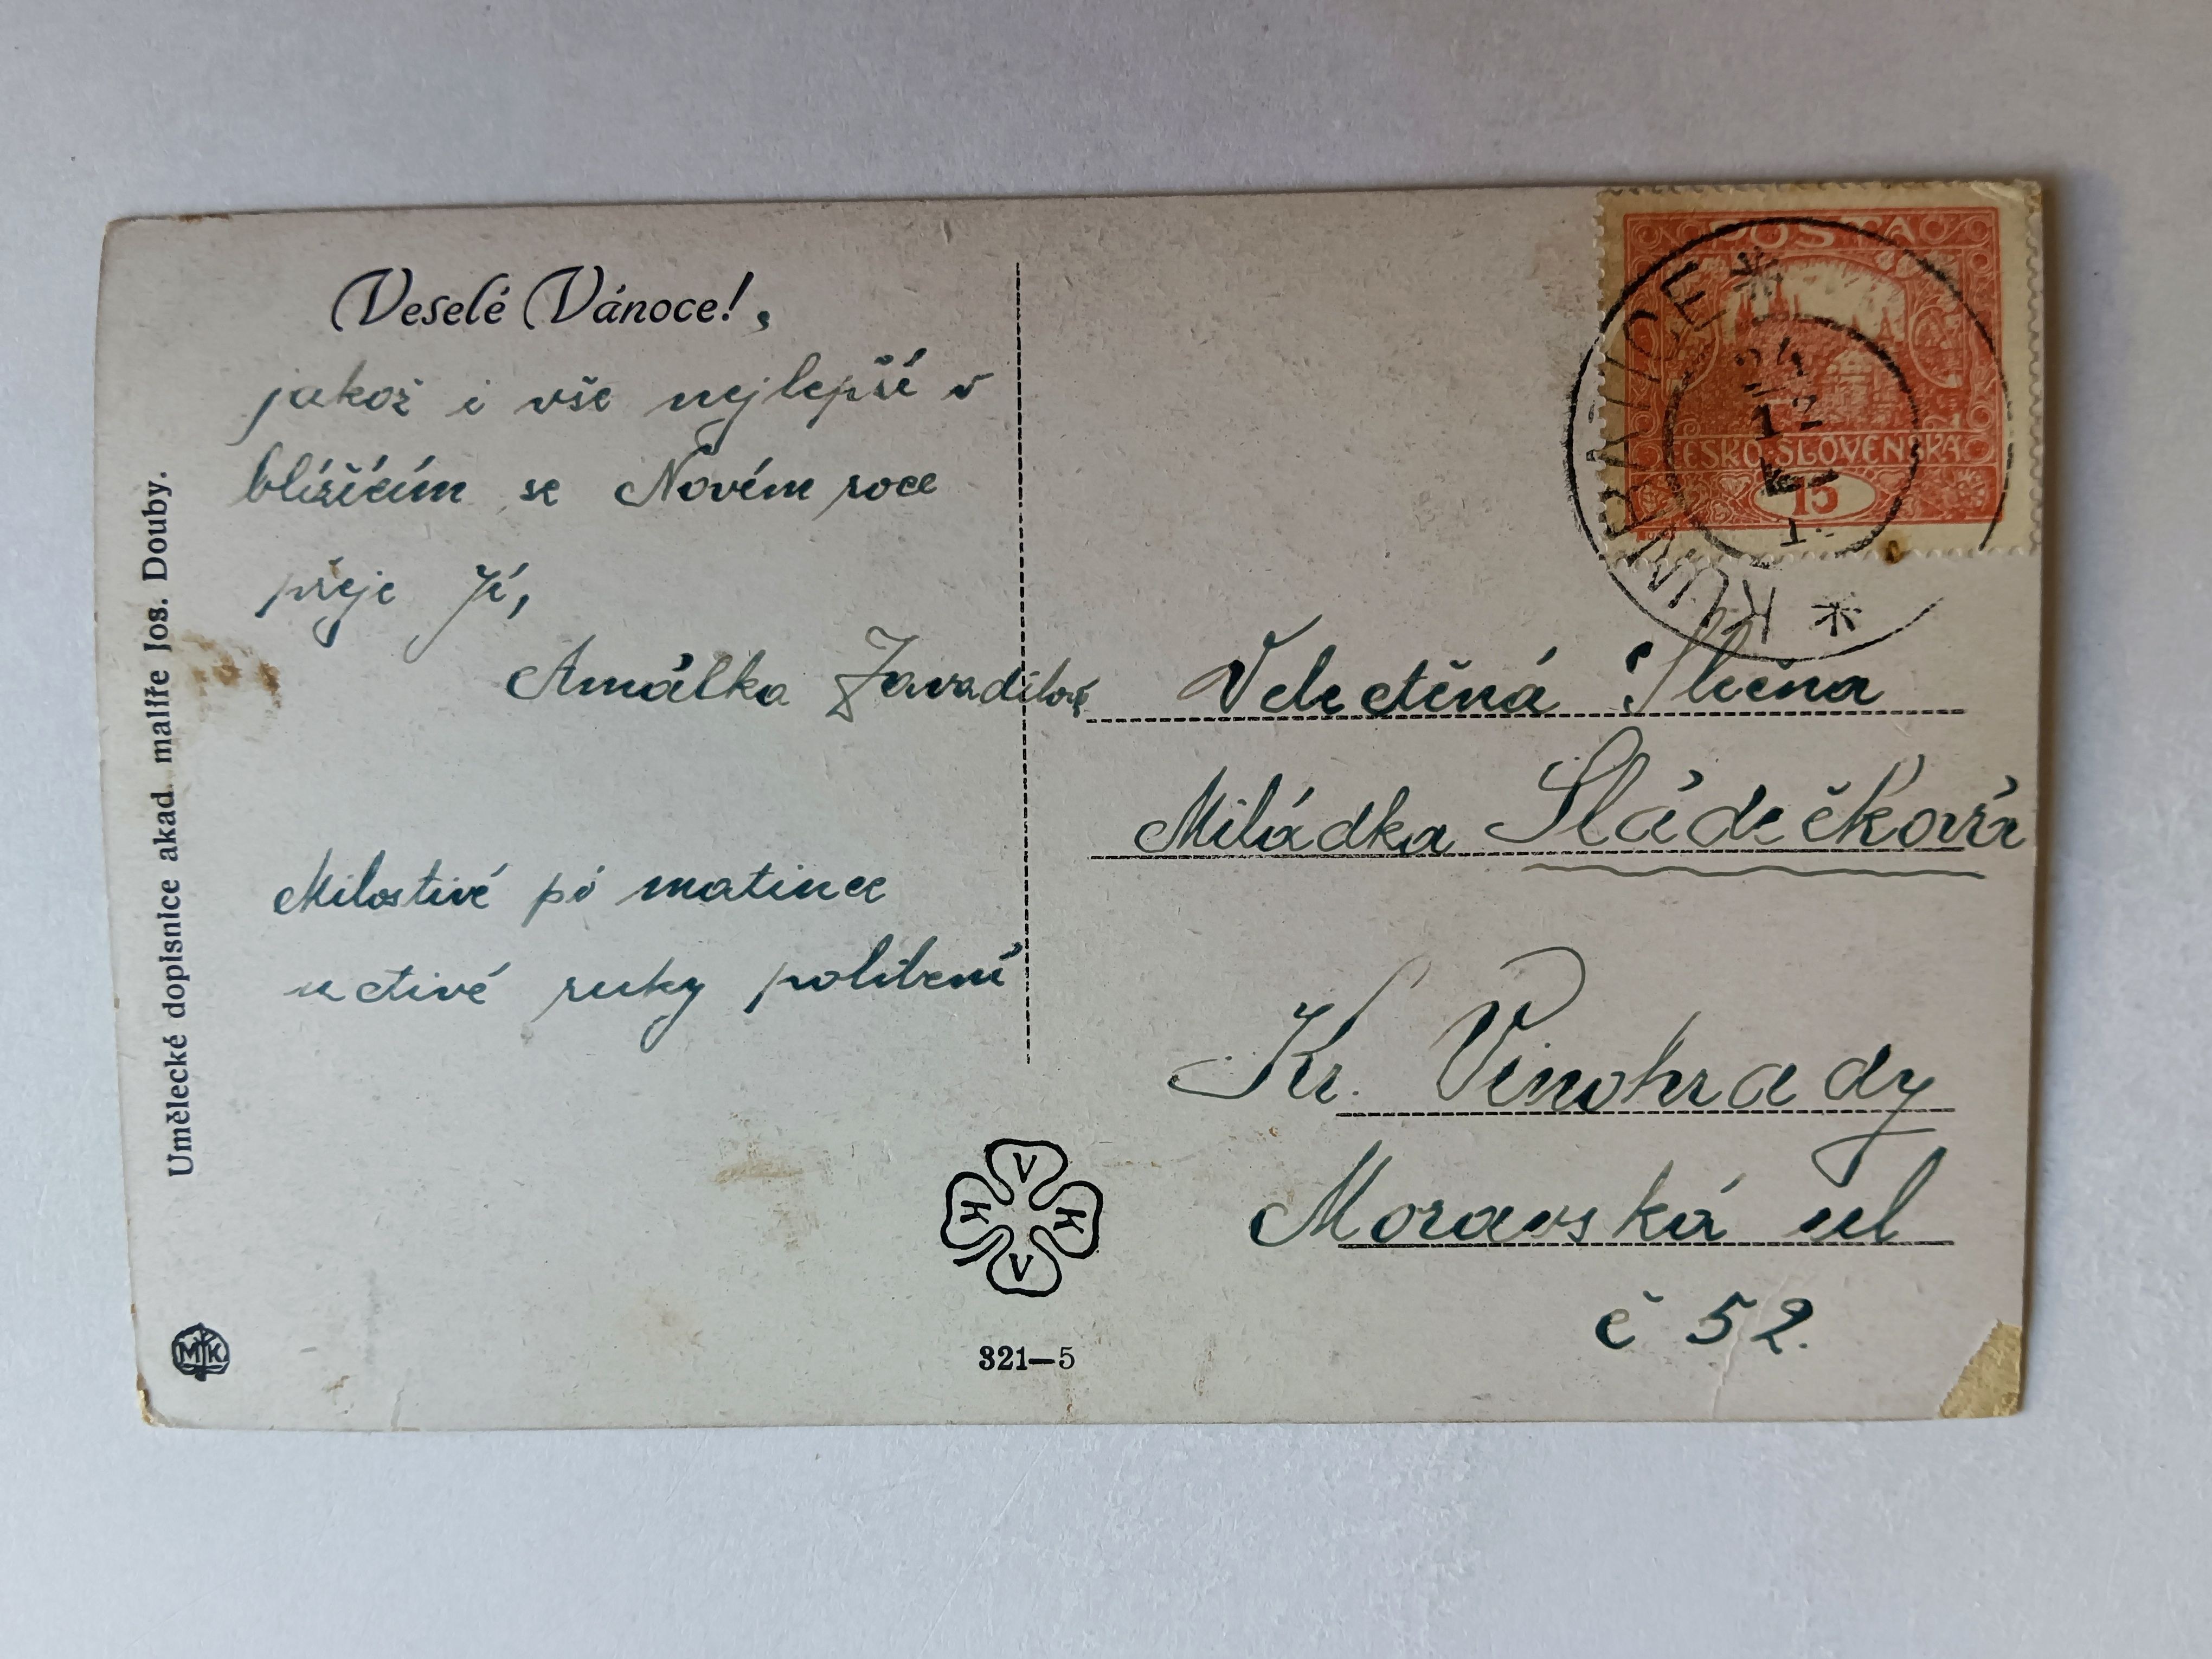 Veselé Vánoce!,
jakož i vše nejlepší v
blížícím se Novém roce
přeje Jí,
Amálka Zavadilová
Milostivé pí matince
uctivé ruky políbení
Umělecké dopisnice akad. malíře Jos. Douby.
MK
V
K K
V
321—5
POŠTA
ČESKO-SLOVENSKÁ
15
KUNRATICE
24
12
Velectěná Slečna
Miládka Sládečková
Kr. Vinohrady
Moravská ul
č 52.